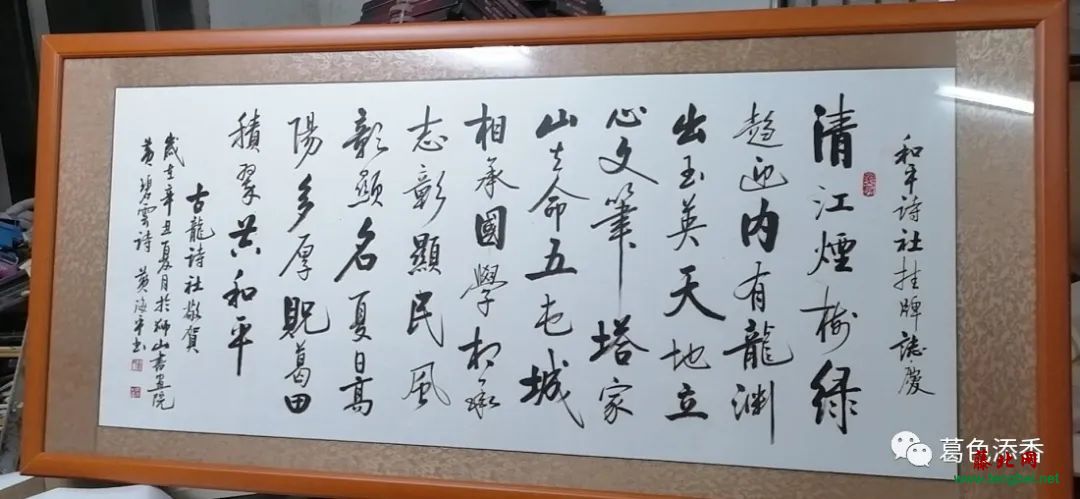 和平诗社挂牌誌慶
清江煙樹绿
趋迎内有龍渊
出玉英天地立
心文筆塔家
山生命五屯城
相承國學相承
志彰顯民風
彰顯名夏日高
陽多厚貺葛田
積翠共和平
古龍詩社敬贺
歲在辛丑夏月於狮山書画院
黄碧雲诗 黄海平书
葛色添香
藤北网
www.tengbei.net